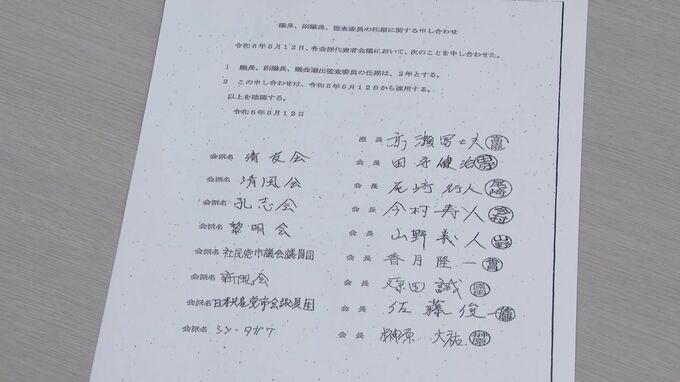 議長、副議長、監査委員の任期に関する申し合わせ
令和5年5月12日、各会派代表者会議において、次のことを申し合わせた。
1 議長、副議長、議会選出監査委員の任期は、2年とする。
2 この申し合わせは、令和5年5月12日から適用する。
以上を確認する。
令和5年5月12日
座長
会派名 清友会 会長 田守健治
会派名 清風会 会長 尾﨑行人 尾﨑
会派名 孔志会 会長 今村寿人 今村
会派名 黎明会 会長 山野義人 山野
会派名 社民党市議会議員団 会長 香月隆一
会派名 新風会 会長 誠
会派名 日本共産党市会議員団 会長 佐藤俊一
会派名 シン・タガワ 会長 榊原大祐